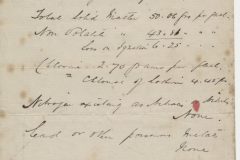 Total Solid Matter 50.06 grs per gall.
Non Volatile " 43.81 "
Loss on Ignition 6.25 "
Chlorine 2.70 grains per gall.
= Chloride of Sodium 4.45 grs
Nitrogen existing as Nitrates
None.
Lead or other poisonous metals
None